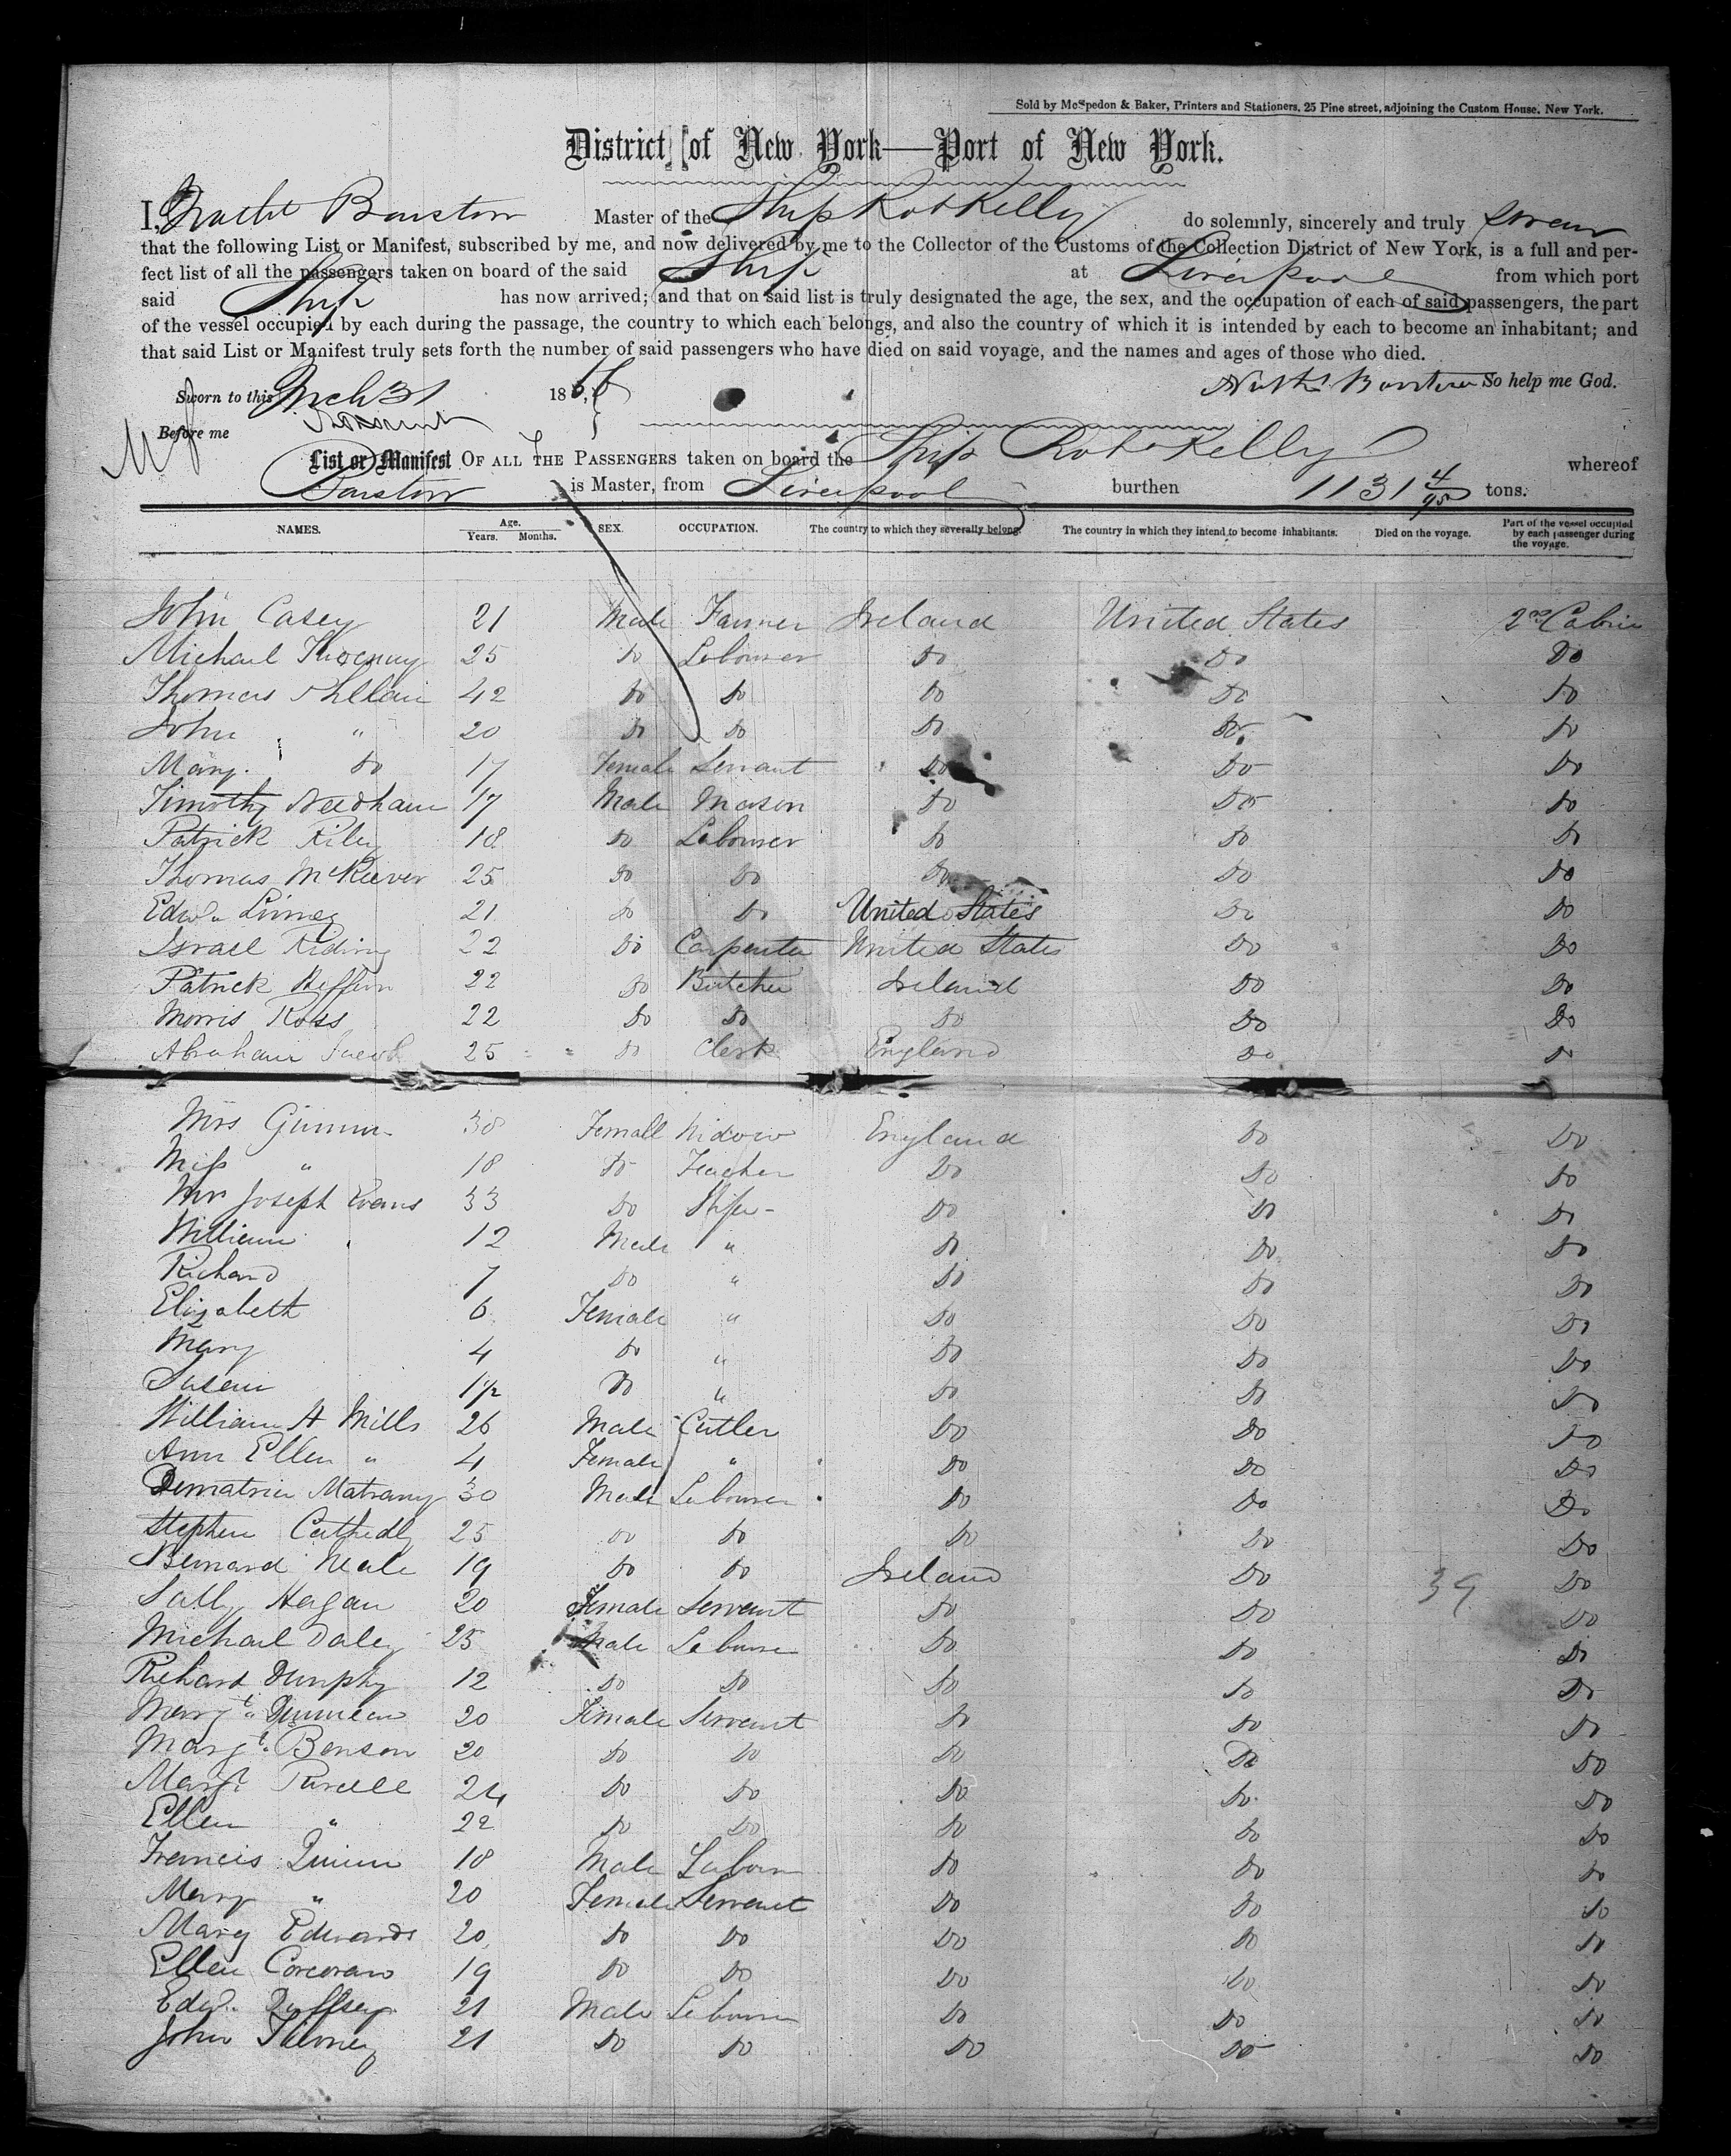 Sold by McSpedon & Baker, Printers and Stationers, 25 Pine street, adjoining the Custom House, New York.
District of New York—Port of New York.
I, Barstow Master of the Ship Robt Kelly do solemnly, sincerely and truly swear
that the following List or Manifest, subscribed by me, and now delivered by me to the Collector of the Customs of the Collection District of New York, is a full and per-
fect list of all the passengers taken on board of the said Ship at Liverpool from which port
said Ship has now arrived; and that on said list is truly designated the age, the sex, and the occupation of each of said passengers, the part
of the vessel occupied by each during the passage, the country to which each belongs, and also the country of which it is intended by each to become an inhabitant; and
that said List or Manifest truly sets forth the number of said passengers who have died on said voyage, and the names and ages of those who died.
Sworn to this Mch 31 185 Barstow So help me God.
Before me
List or Manifest OF ALL THE PASSENGERS taken on board the Ship Robt Kelly whereof
Barstow is Master, from Liverpool burthen 1131 4/95 tons.
NAMES. Age. Years. Months. SEX. OCCUPATION. The country to which they severally belong. The country in which they intend to become inhabitants. Died on the voyage. Part of the vessel occupied by each passenger during the voyage.
John Casey 21 Male Farmer Ireland United States 2nd Cabin
Michael 25 Do Labourer Do Do Do
Thomas 42 Do Do Do Do Do
John " 20 Do Do Do Do Do
Mary Do 17 Female Servant Do Do Do
Timothy Needham 17 Male Mason Do Do Do
Patrick Riley 18 Do Labourer Do Do Do
Thomas McKeever 25 Do Do Do Do Do
Edwd 21 Do Do United States Do Do
Israel Riding 22 Do Carpenter United States Do Do
Patrick Heffern 22 Do Butcher Ireland Do Do
Morris Ross 22 Do Do Do Do Do
Abraham 25 Do Clerk England Do Do
Mrs 38 Female Widow England Do Do
Miss " 18 Do Teacher Do Do Do
Mrs Joseph Evans 33 Do Wife Do Do Do
William 12 Male " Do Do Do
Richard 7 Do " Do Do Do
Elizabeth 6 Female " Do Do Do
Mary 4 Do " Do Do Do
Susan 1½ Do " Do Do Do
William H Mills 26 Male Cutler Do Do Do
Ann Ellen " 4 Female " Do Do Do
30 Male Labourer Do Do Do
Stephen 25 Do Do Do Do Do
Bernard Neale 19 Do Do Ireland Do Do
Sally Hagan 20 Female Servant Do Do 39 Do
Michael Daley 25 Male Labourer Do Do Do
Richard Dunphy 12 Do Do Do Do Do
Margt 20 Female Servant Do Do Do
Margt Benson 20 Do Do Do Do Do
Margt Purcell 24 Do Do Do Do Do
Ellen " 22 Do Do Do Do Do
Francis Quinn 18 Male Labour Do Do Do
Mary " 20 Female Servant Do Do Do
Mary Edwards 20 Do Do Do Do Do
Ellen Corcoran 19 Do Do Do Do Do
Edwd 21 Male Labourer Do Do Do
John Tierney 21 Do Do Do Do Do